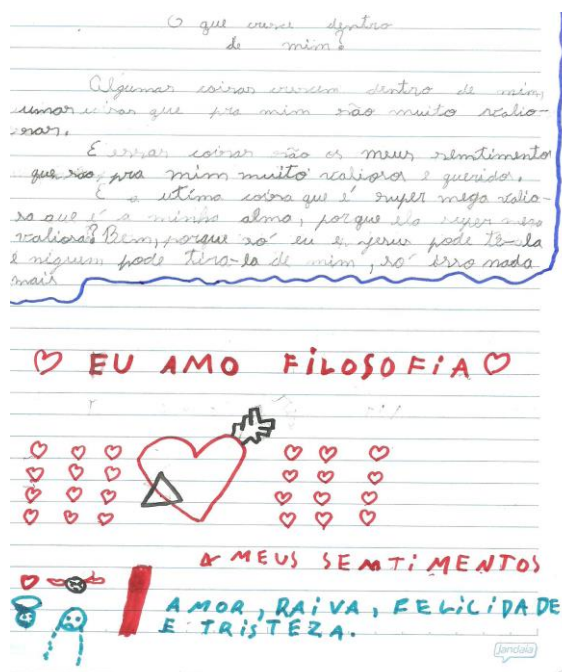 O que cresce dentro
de mim?
Algumas coisas crescem dentro de mim,
umas coisas que pra mim são muito valio-
sas.
E essas coisas são os meus semtimentos
que são pra mim muito valiosos e queridos.
E a utima coisa que é super mega valio-
sa que é a minha alma, porque ela super mega
valiosa? Bem, porque só eu e jesus pode tê-la
e niguem pode tira-la de mim, só isso nada
mais
EU AMO FILOSOFIA
MEUS SEMTIMENTOS
AMOR, RAIVA, FELICIDADE
E TRISTEZA.
jandaia